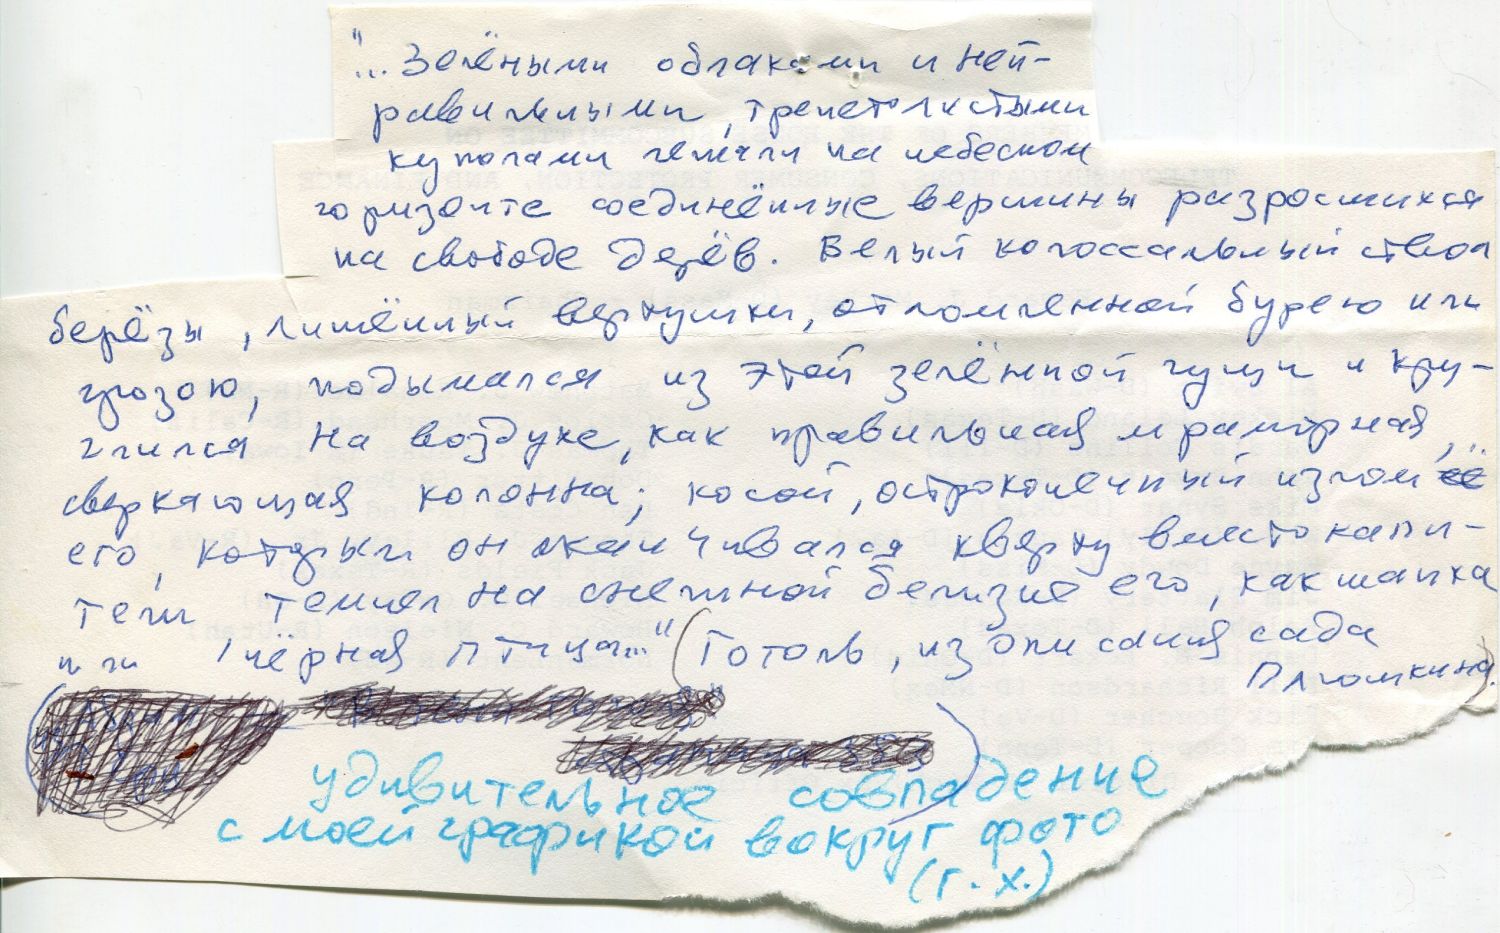 "...Зелёными облаками и неп-
равильными, трепетолистыми
куполами лежали на небесном
горизонте соединённые вершины разросшихся
на свободе дерёв. Белый колоссальный ствол
берёзы, лишённый верхушки, отломленной бурею или
грозою, подымался из этой зелённой гущи и кру-
глился на воздухе, как правильная мраморная,
сверкающая колонна; косой, остроконечный излом
его, которым он оканчивался кверху вместо капи-
тели темнел на снежной белизне его, как шапка
или чёрная птица..." (Гоголь, из описания сада
Плюшкина)
удивительное совпадение
с моей графикой вокруг фото
(г. х.)